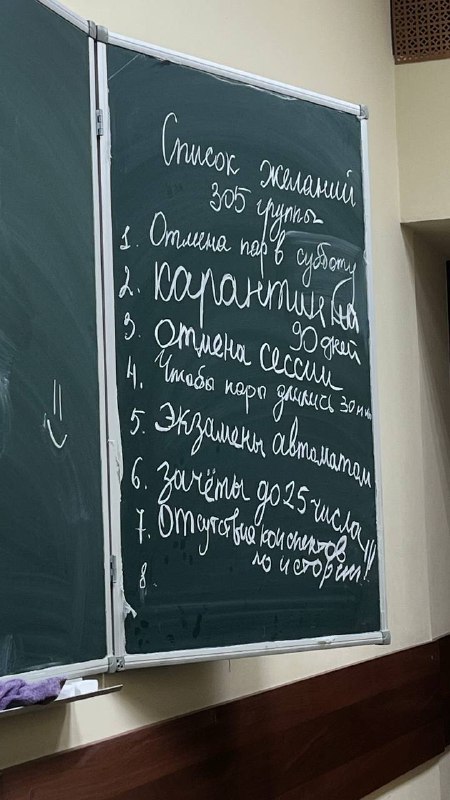 Список желаний
305 группы
1. Отмена пар в субботу
2. карантин на
90 дней
3. отмена сессии
4. Чтобы пары длились 30 мин
5. Экзамены автоматам
6. зачёты до 25 числа!!!
7. Отсутствия конспектов
по истории!!
8.